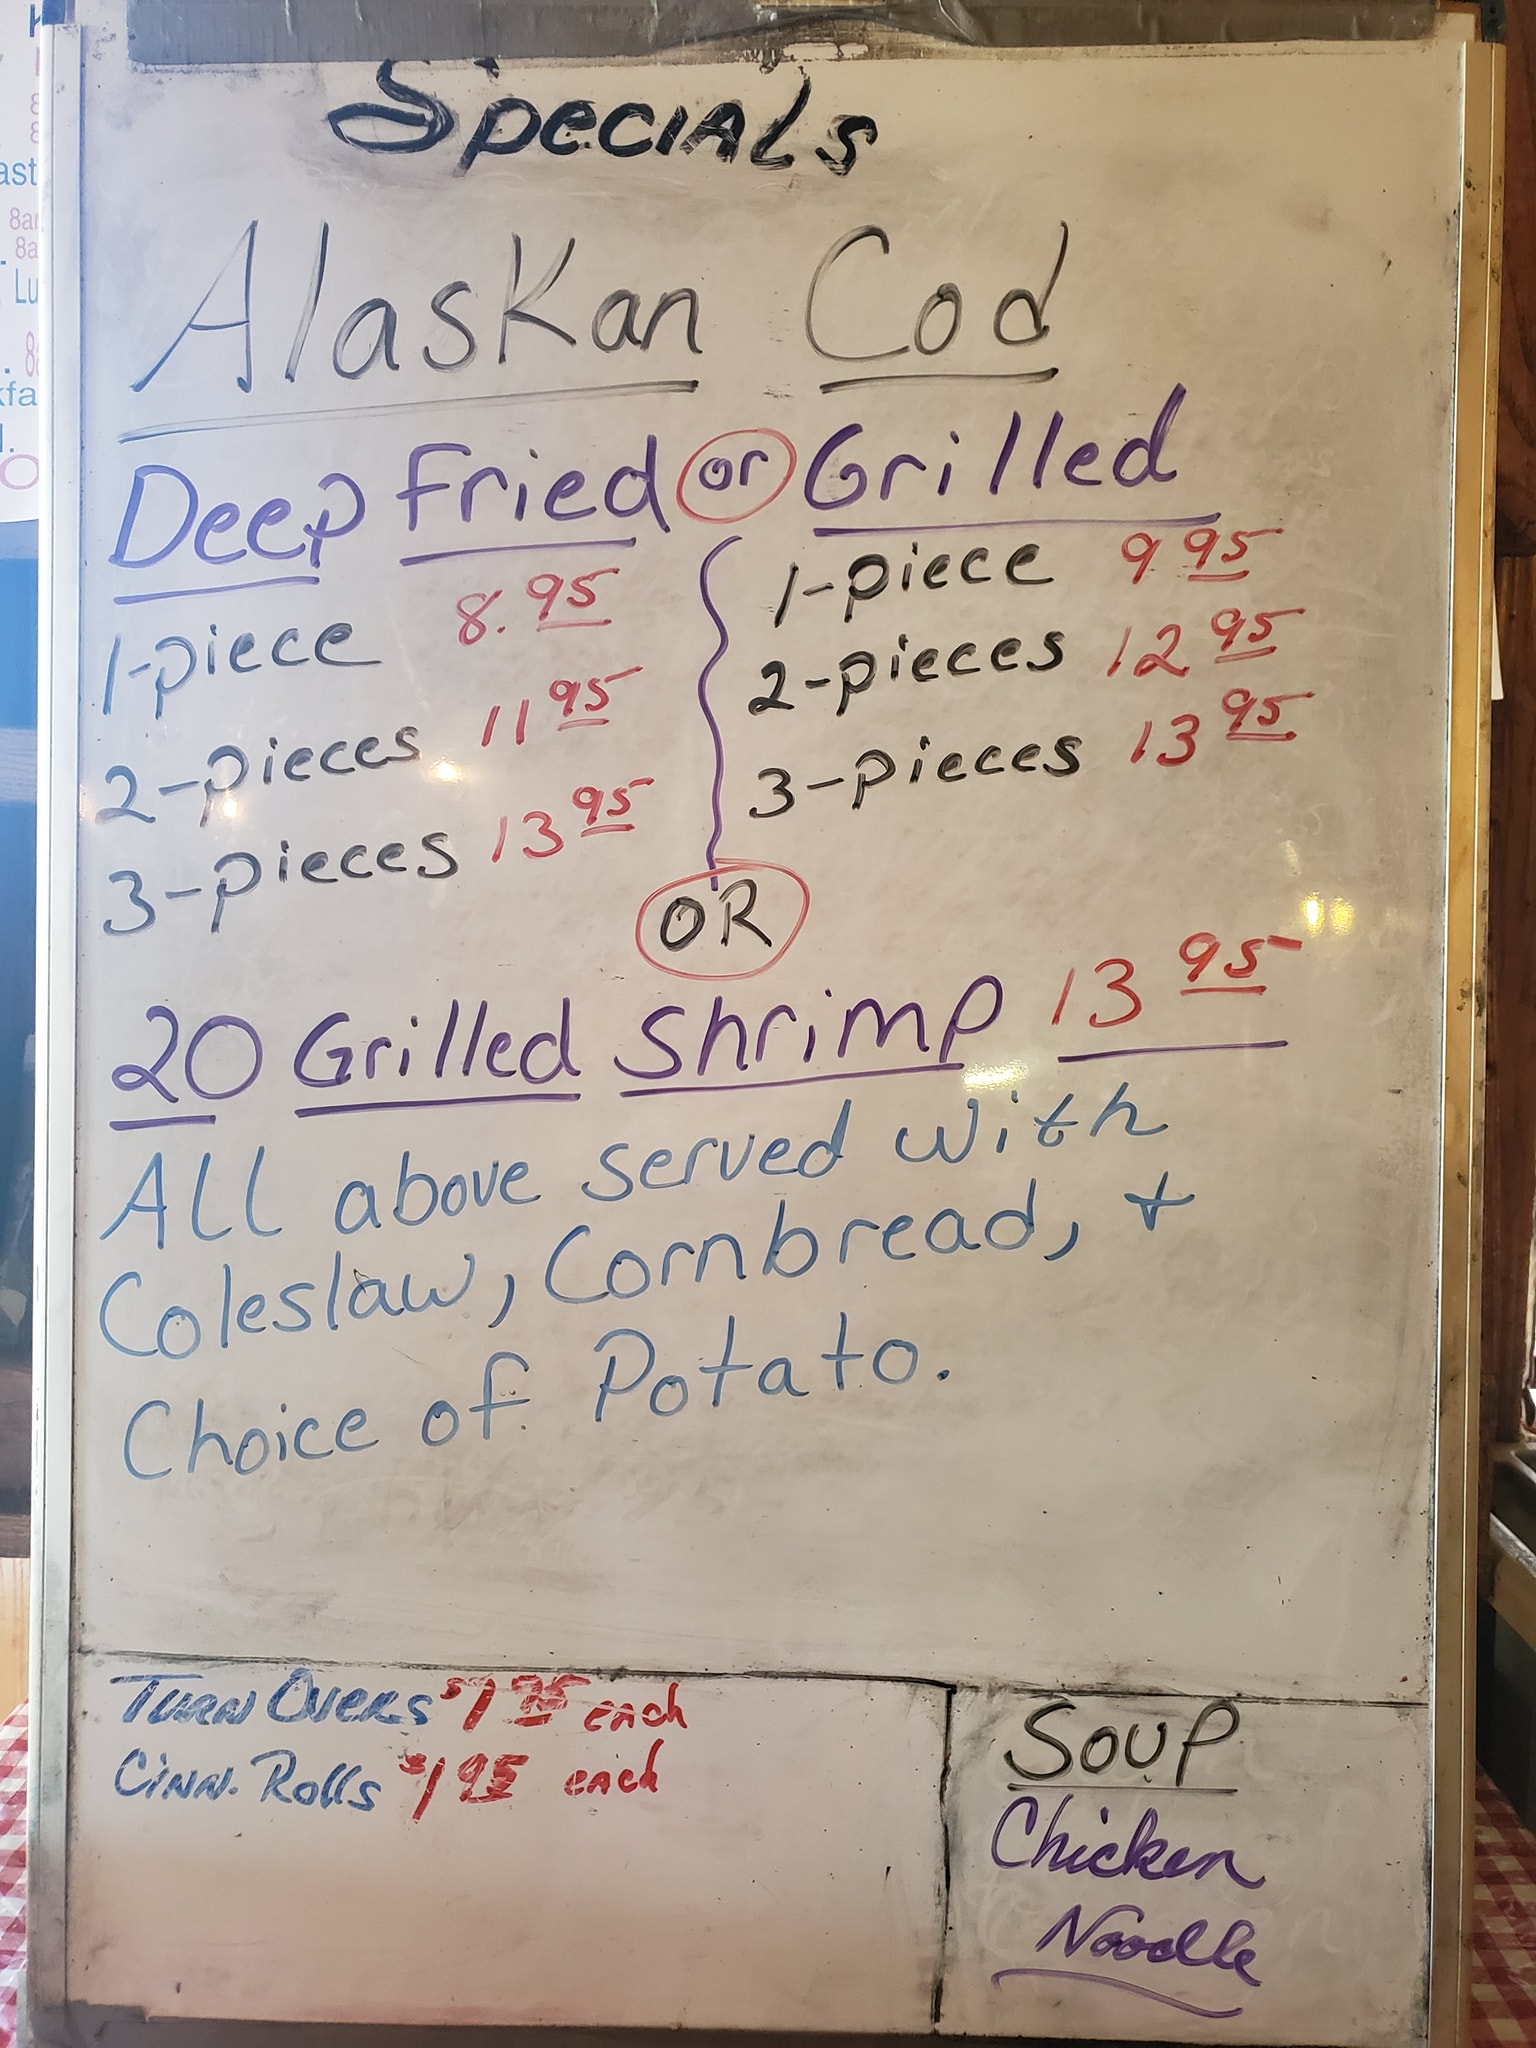 Specials
Alaskan Cod
Deep Fried or Grilled
1-piece 8.95
2-pieces 11 95
3-pieces 13 95
1-piece 9 95
2-pieces 12 95
3-pieces 13 95
OR
20 Grilled Shrimp 13 95
All above served with
Coleslaw, Cornbread, +
Choice of Potato.
Turn Overs $1 each
Cinn. Rolls $1 95 each
Soup
Chicken
Noodle